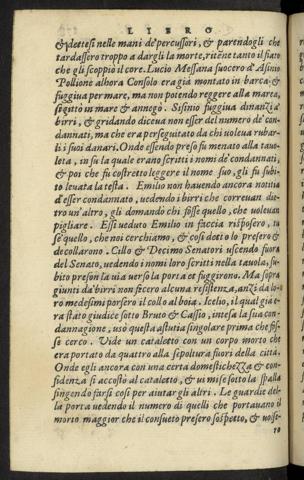 LIBRO
& dettesi nelle mani de' percussori, & parendogli che
tardassero troppo a dargli la morte, ritēne tanto il fiato
che gli scoppiò il core. Lucio Messana suocero d'Asinio
Pollione alhora Consolo era già montato in barca, &
fuggiua per mare, ma non potendo reggere alla marea,
si gittò in mare & annegò. Sisinio fuggiua dinanzi a'
birri, & gridando diceua non esser del numero de' con-
dannati, ma che era perseguitato da chi voleua rubar-
li i suoi danari. Onde essendo preso fu menato alla tauo-
lota, in su la quale erano scritti i nomi de' condannati,
& poi che fu costretto leggere il nome suo, gli fu subi-
to leuata la testa. Emilio non hauendo ancora notitia
d'esser condannato, vedendo i birri che correuan die-
tro un'altro, gli domandò chi fosse quello, che voleuan
pigliare. Essi veduto Emilio in faccia risposero, tu
se' quello, che noi cerchiamo, & cosi detto lo presero &
decollarono. Cillo & Decimo Senatori uscendo fuora
del Senato, vedendo i nomi loro scritti nella tauola, su-
bito preson la uia verso la porta et fuggirono. Ma sopra
giunti da' birri non ficero alcuna resistenza, anzi da lo-
ro medesimi porsero il collo al boia. Icelio, il qual già e-
ra stato giudice sotto Bruto & Cassio, intesa la sua con-
dannagione, usò questa astutia singolare prima che fos-
se cerco. Vide un cataletto con un corpo morto che
era portato da quattro alla sepoltura fuori della città.
Onde egli ancora con una certa domestichezza & con-
fidenza si accostò al cataletto, & vi mise sotto la spalla
fingendo farsi cosi per aiutar gli altri. Le guardie del-
la porta vedendo il numero di quelli che portauano il
morto maggior che il consueto presero sospetto, & volse-